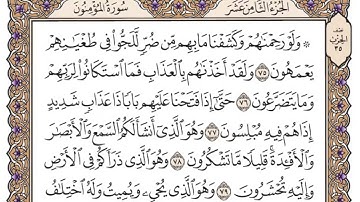 الجزء الثامن عشر
سورة المؤمنون
۞ وَلَوْ رَحِمْنَٰهُمْ وَكَشَفْنَا مَا بِهِم مِّن ضُرٍّ لَّلَجُّوا۟ فِى طُغْيَٰنِهِمْ
يَعْمَهُونَ ٧٥ وَلَقَدْ أَخَذْنَٰهُم بِٱلْعَذَابِ فَمَا ٱسْتَكَانُوا۟ لِرَبِّهِمْ
وَمَا يَتَضَرَّعُونَ ٧٦ حَتَّىٰٓ إِذَا فَتَحْنَا عَلَيْهِم بَابًا ذَا عَذَابٍ شَدِيدٍ
إِذَا هُمْ فِيهِ مُبْلِسُونَ ٧٧ وَهُوَ ٱلَّذِىٓ أَنشَأَ لَكُمُ ٱلسَّمْعَ وَٱلْأَبْصَٰرَ
وَٱلْأَفْـِٔدَةَ قَلِيلًا مَّا تَشْكُرُونَ ٧٨ وَهُوَ ٱلَّذِى ذَرَأَكُمْ فِى ٱلْأَرْضِ
وَإِلَيْهِ تُحْشَرُونَ ٧٩ وَهُوَ ٱلَّذِى يُحْىِۦ وَيُمِيتُ وَلَهُ ٱخْتِلَٰفُ